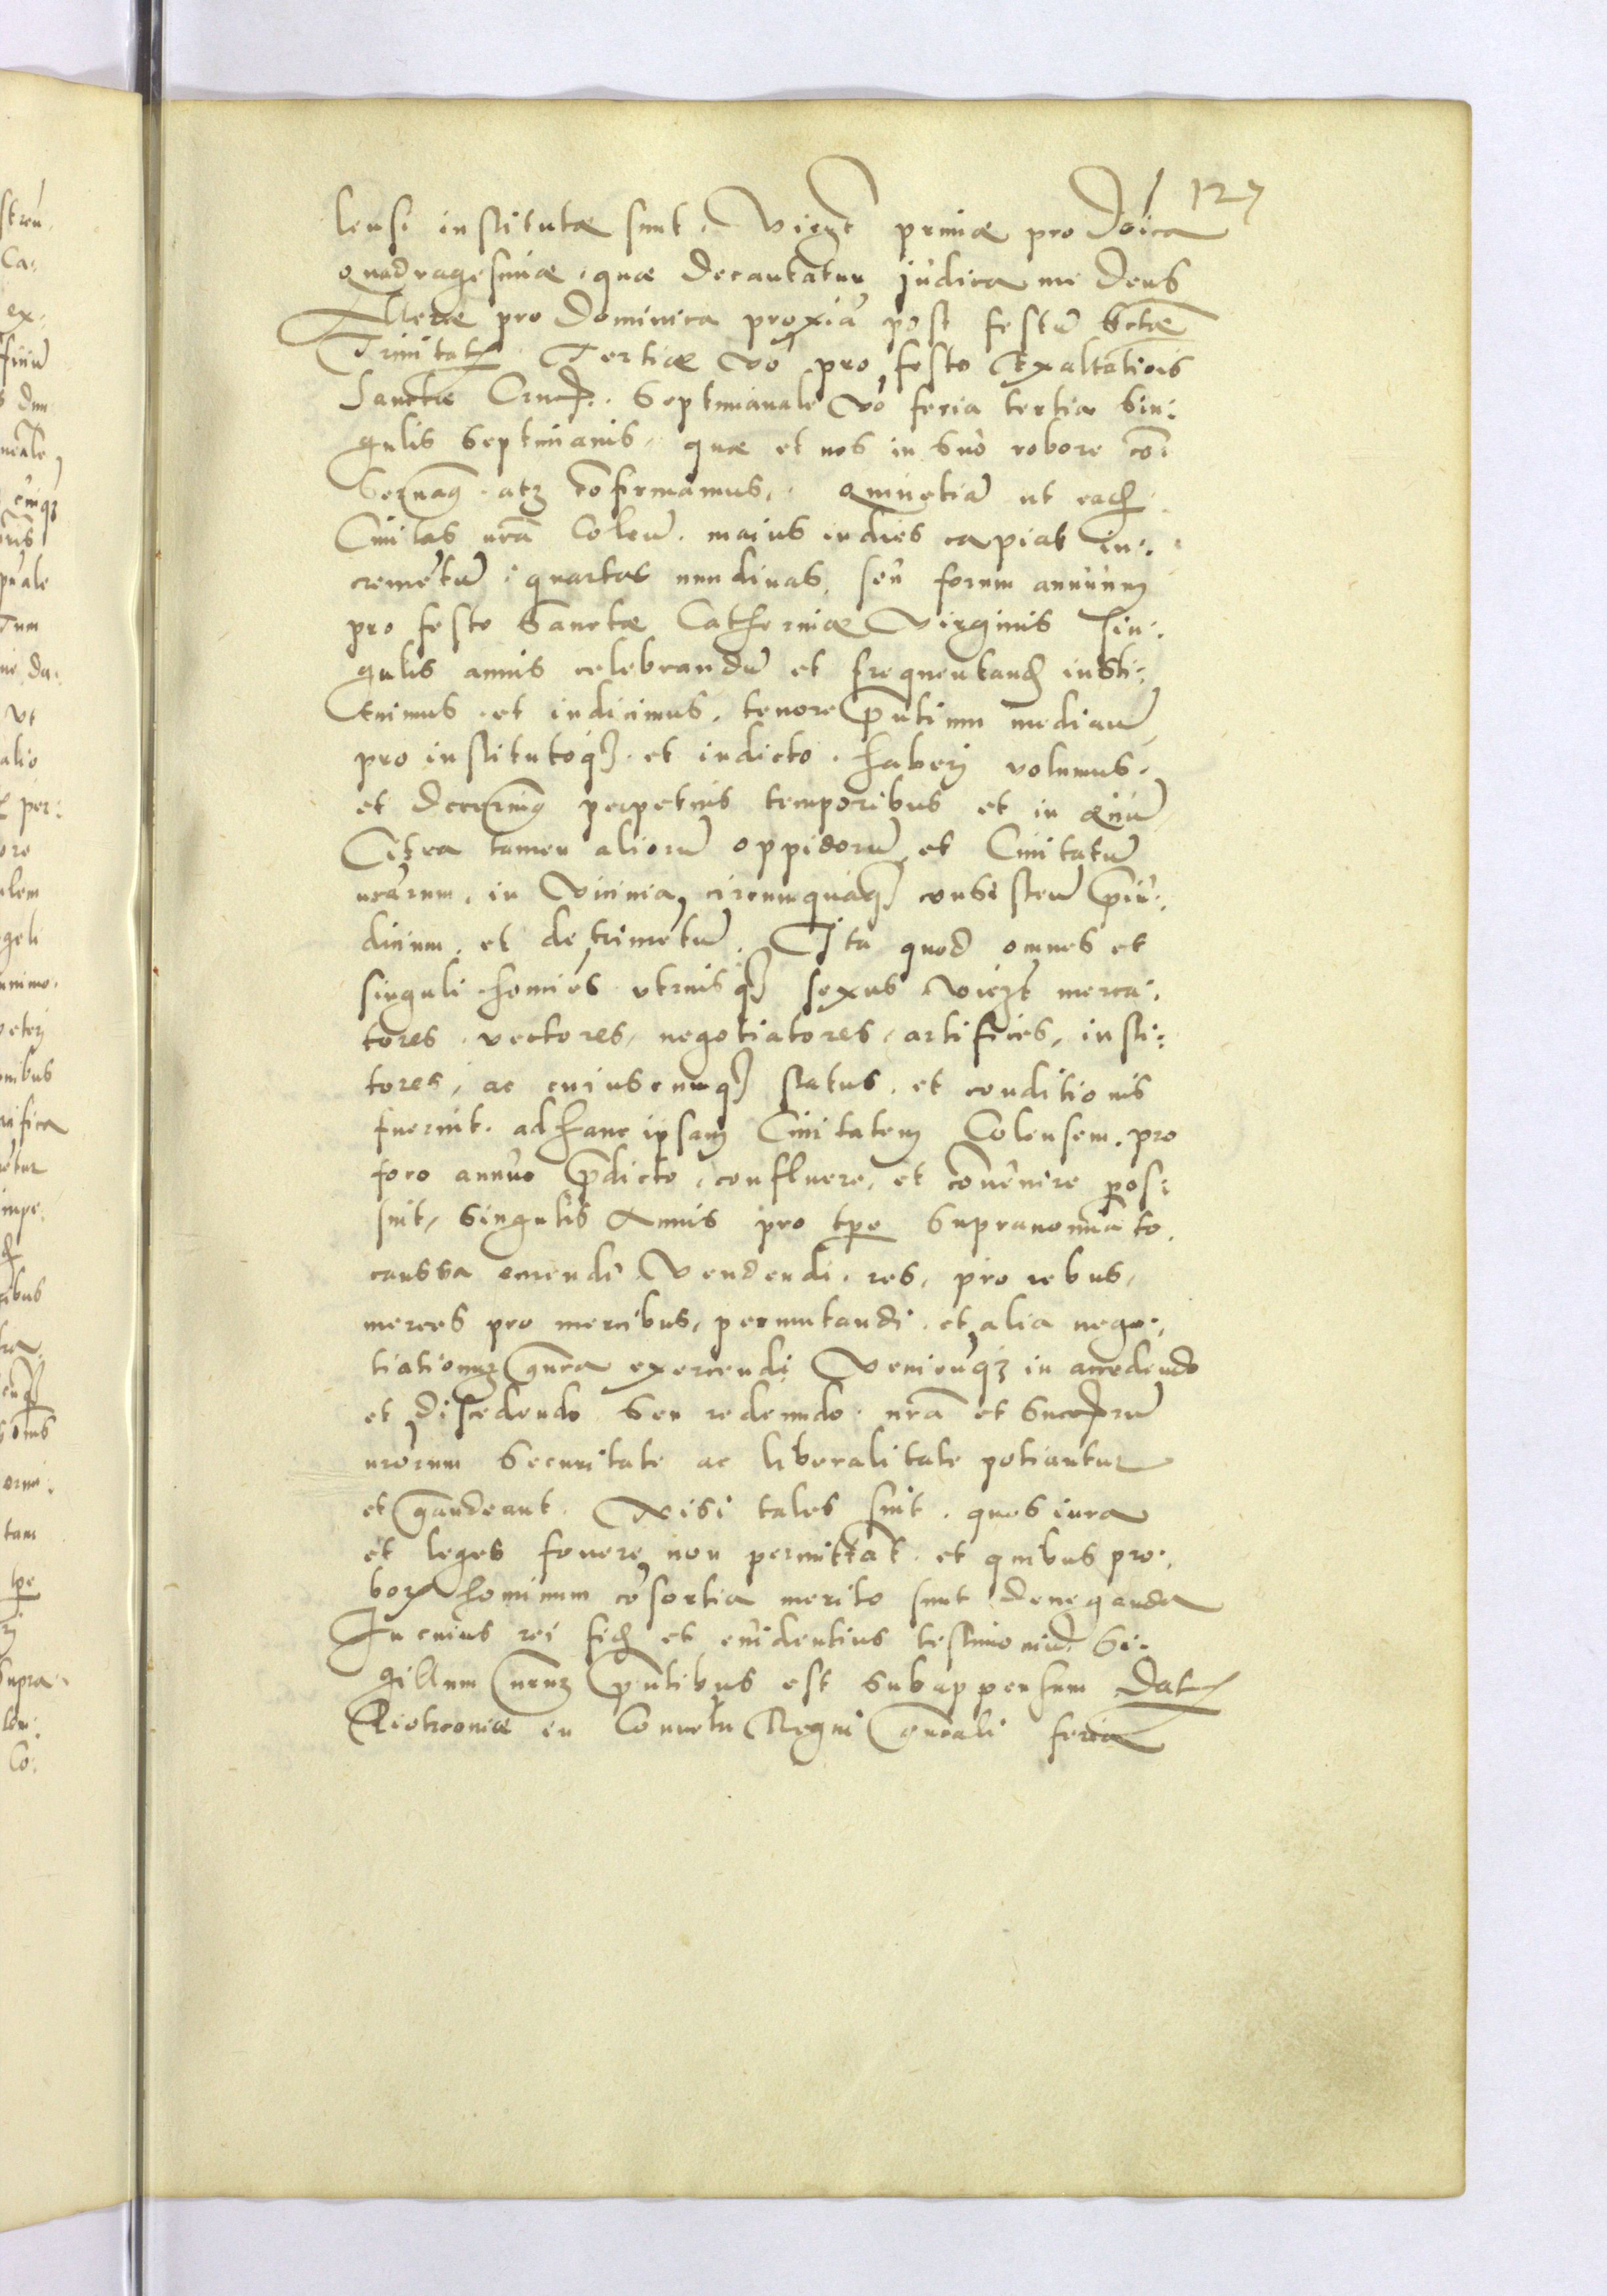 127
lensi institutæ sunt. Videlt primæ pro Doica
quadragesimæ, quæ decantatur judica me Deus
Alteræ pro Dominica proxia post festu Sctæ
Trinitatis. Tertiæ vo pro festo Exaltatiois
Sanctæ Crucis. Septimanale vo feria tertia Sin:
gulis septimanis, quæ et nos in suo robore co:
servamus atq3 cofirmamus. Quinetia ut eadem
Civitas nra Colen. maius indies capiat in:
cremetu, quartas nundinas, seu forum annuum
pro festo Sanctæ Catherinæ Virginis sin:
gulis annis celebrandu et frequentand insti:
tuimus et indicimus, tenore pntium median
pro institutoq3 et indicto haberi volumus,
et decernimus perpetuis temporibus et in ævu
Citra tamen alioru oppidoru et Civitatu
nrarum, in vicinia circumquaq3 consisten præiu:
dicium, et detrimetu. Ita quod omnes et
singuli homies utriusq3 sexus videlt merca:
tores, vectores, negotiatores, artifices, insti:
tores, ac cuiuscumq3 status, et conditionis
fuerint, ad hanc ipsam Civitatem Colensem, pro
foro annuo prædicto, confluere, et convenire pos:
sint, singulis Annis pro tpe supranominato,
caussa emendi, Vendendi, res, pro rebus,
merces pro mercibus, permutandi, et alia nego:
tiationum gnra exercendi, Venientq3 in accedendo
et discedendo seu redeundo, nra et Successoru
nrorum securitate ac liberalitate potiantur
et gaudeant. Nisi tales sint, quos iura
et leges fovere non permittat et quibus pro:
borum hominum cosortia merito sunt deneganda
In cuius rei fidem et evidentius testimoniu Si:
gillum nrum pntibus est subappensum Dat
Piotrconiæ in Conventu Regni gnrali feria